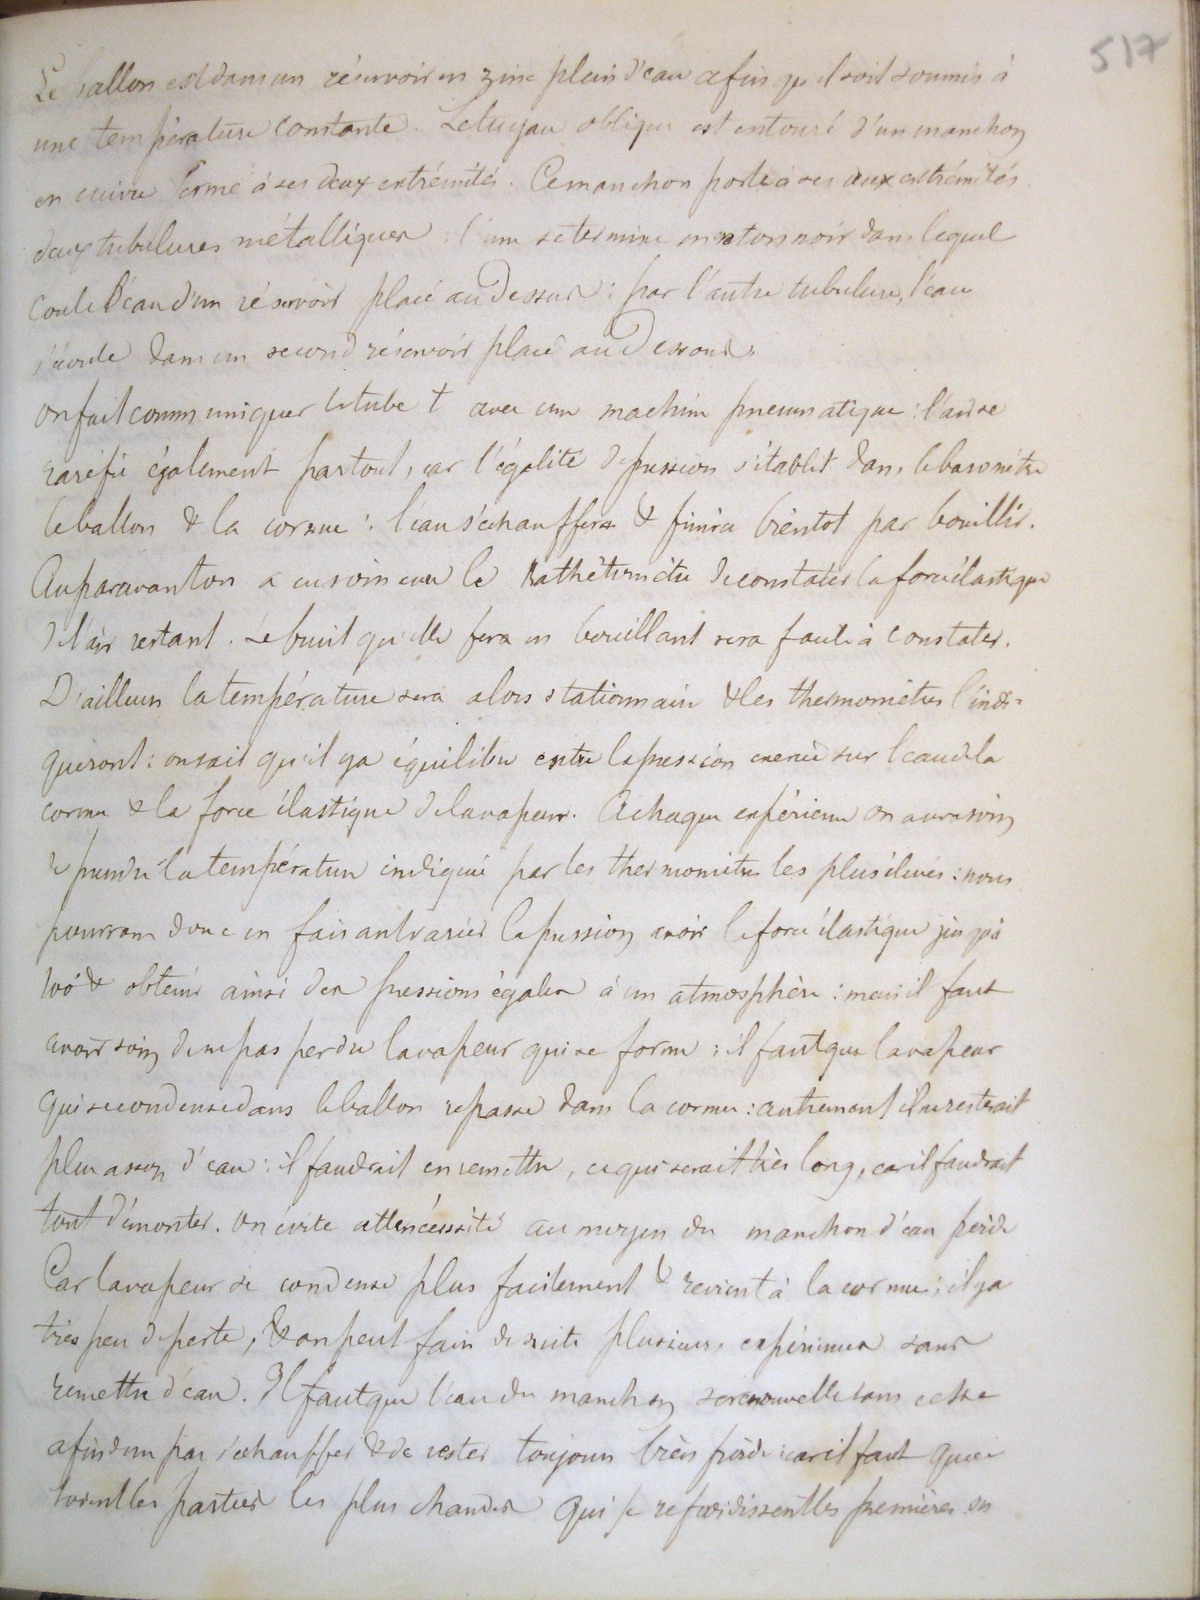 517
Le ballon est dans un réservoir en zinc plein d'eau afin qu'il soit soumis à
une température constante. Le tuyau oblique est entouré d'un manchon
en cuivre fermé à ses deux extrémités. Ce manchon porte à ses deux extrémités
deux tubulures métalliques : l'une se termine en entonnoir dans lequel
coule l'eau d'un réservoir placé au dessus : par l'autre tubulure, l'eau
s'écoule dans un second réservoir placé au dessous.
On fait communiquer le tube t avec une machine pneumatique : l'air se
raréfie également partout, car l'égalité de pression s'établit dans le baromètre
le ballon & la cornue : l'eau s'échauffera & finira bientot par bouillir.
Auparavant on a eu soin avec le kathétomètre de constater la force élastique
de l'air restant. Le bruit qu'elle fera en bouillant sera facile à constater.
D'ailleurs la température sera alors stationnaire & les thermomètres l'indi-
queront : on sait qu'il y a équilibre entre la pression exercée sur l'eau de la
cornue & la force élastique de la vapeur. A chaque expérience on aura soin
de prendre la température indiquée par les thermomètres les plus élevés : nous
pourrons donc en faisant varier la pression avoir la force élastique jusqu'à
100° & obtenir ainsi des pressions égales à un atmosphère : mais il faut
avoir soin de ne pas perdre la vapeur qui se forme : il faut que la vapeur
qui se condense dans le ballon repasse dans la cornue : autrement il ne resterait
plus assez d'eau : il faudrait en remettre, ce qui serait très long, car il faudrait
tout démonter. On évite cette nécessité au moyen du manchon d'eau froide
Car la vapeur se condense plus facilement & revient à la cornue ; il y a
très peu de perte, & on peut faire de suite plusieurs expériences sans
remettre d'eau. Il faut que l'eau du manchon se renouvelle sans cesse
afin de ne pas s'échauffer & de rester toujours très froide : car il faut que ce
soient les parties les plus chaudes qui se refroidissent les premières en